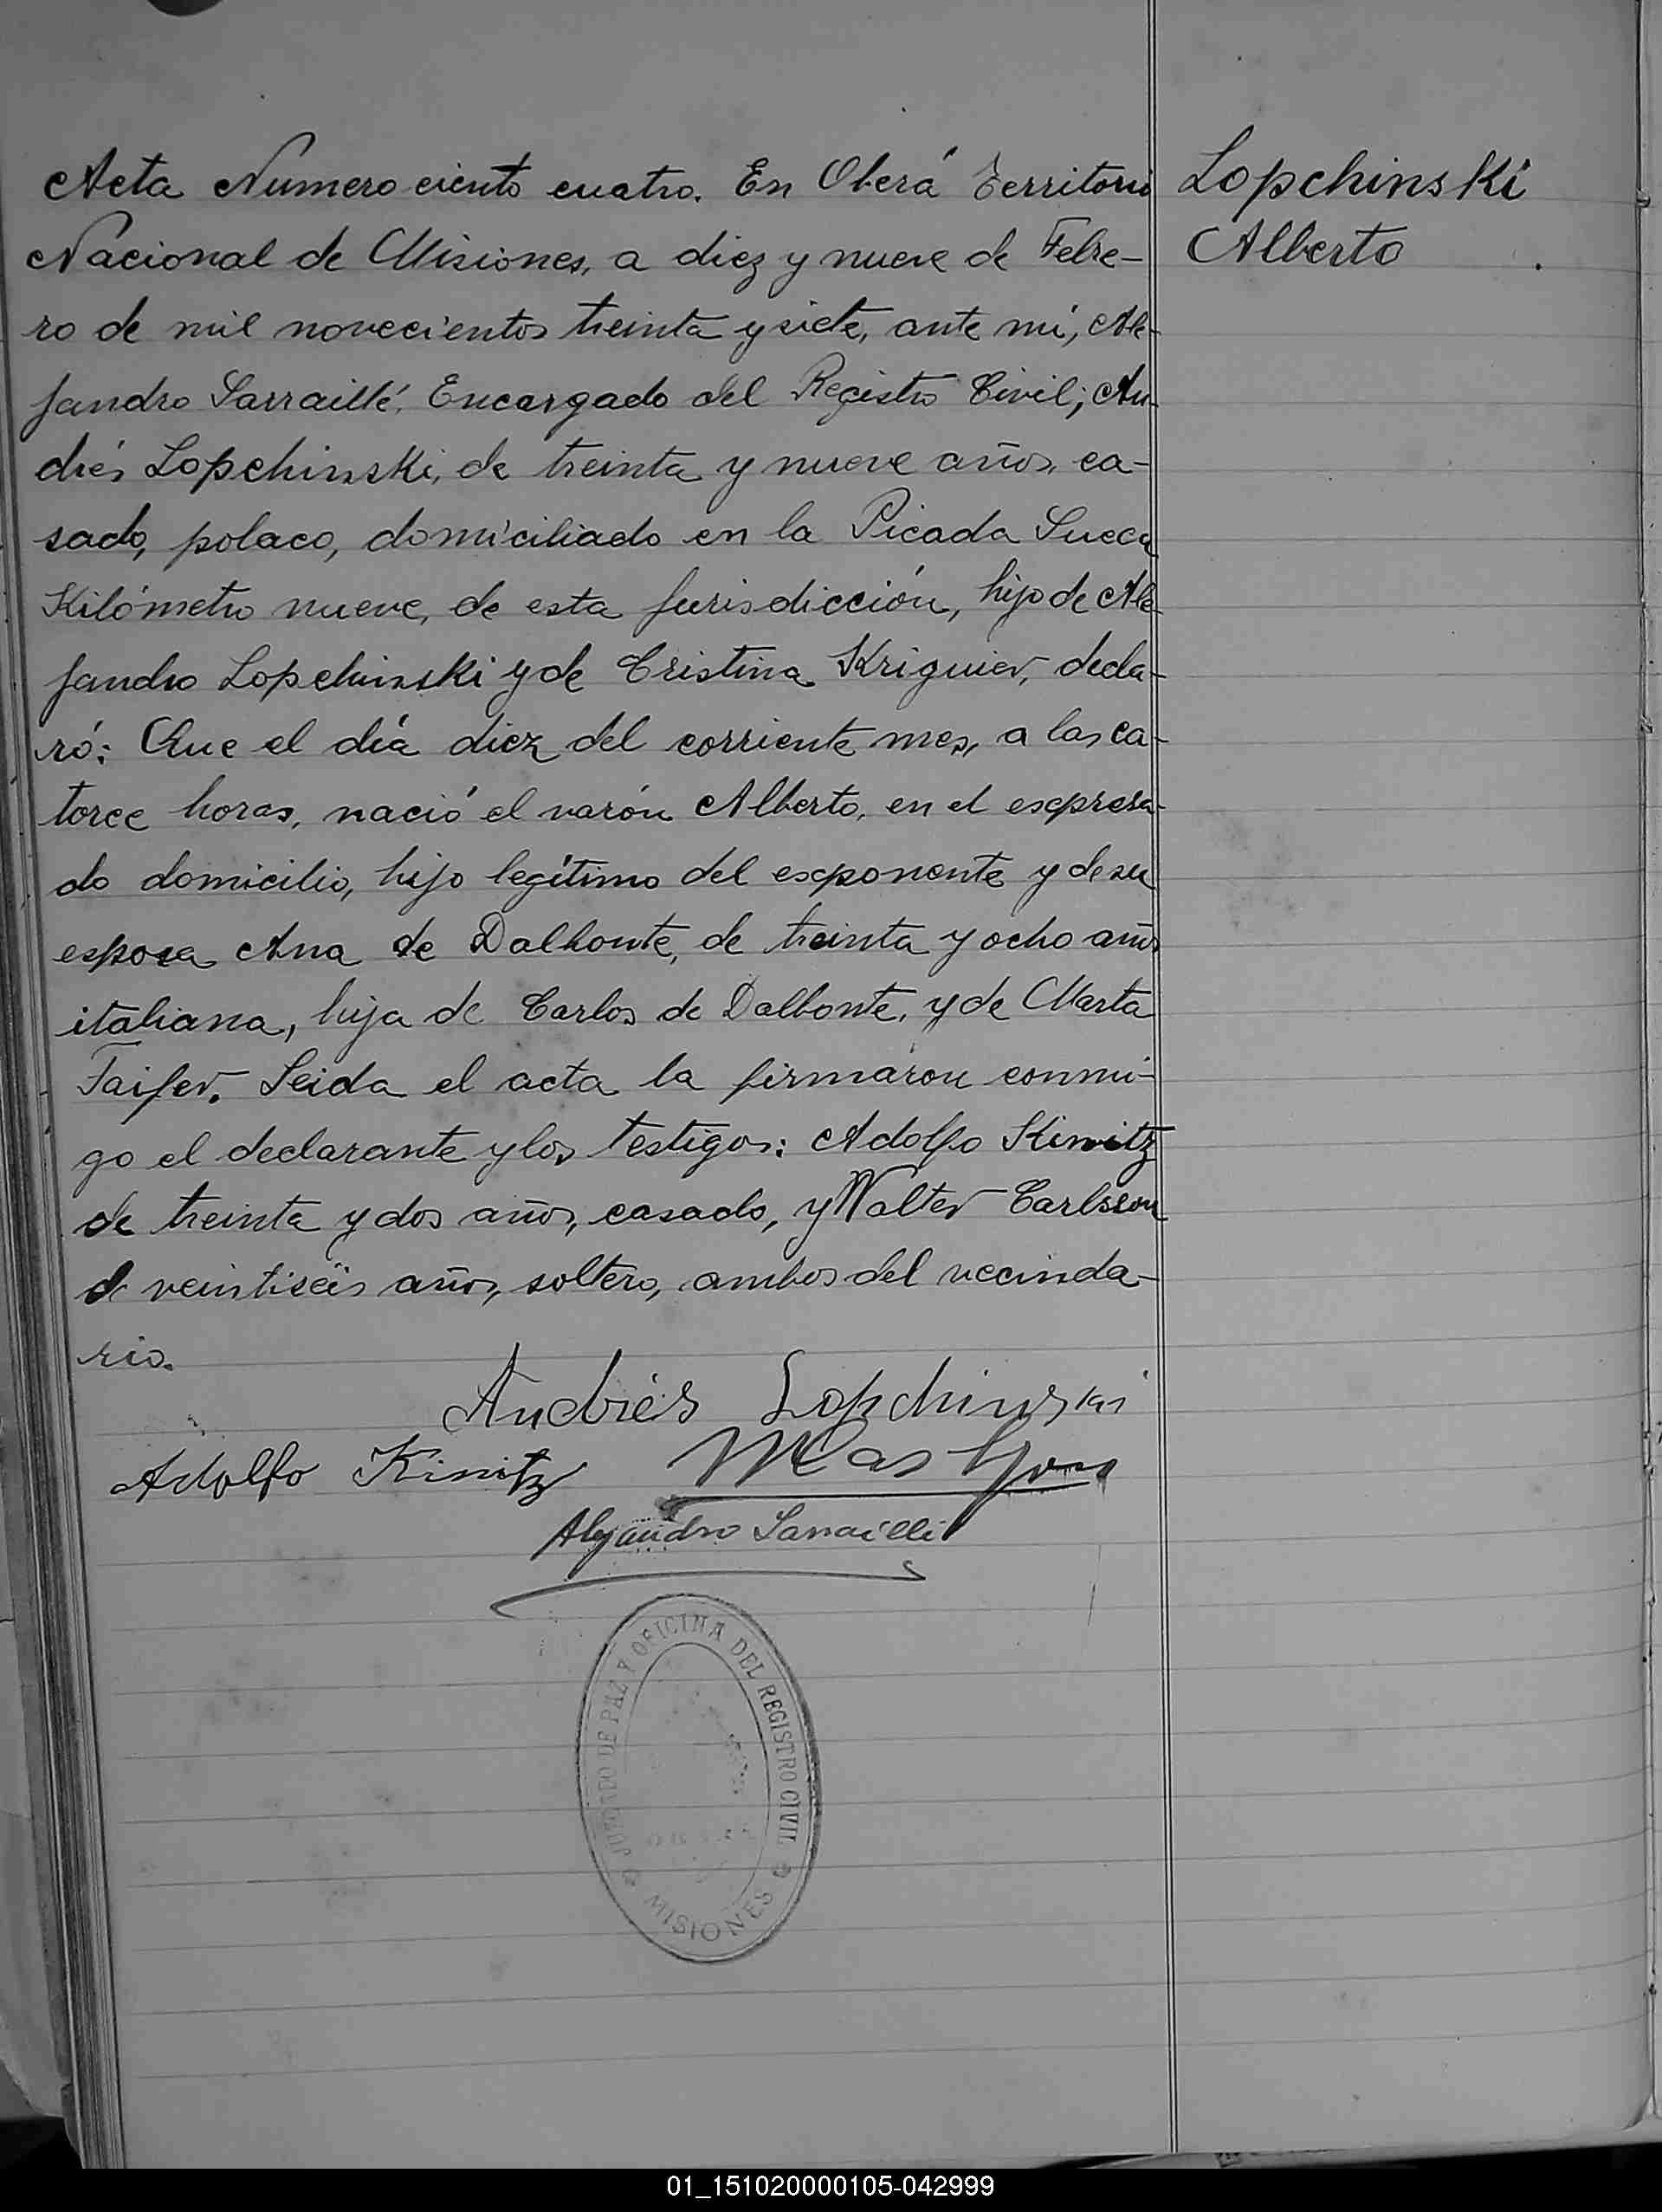 Acta Numero ciento cuatro. En Oberá Territorio
Lopchinski
Nacional de Misiones, a diez y nueve de Febre-
Alberto
ro de mil novecientos treinta y siete, ante mí, Ale-
jandro Sarraillé, Encargado del Registro Civil; An-
drés Lopchinski, de treinta y nueve años, ca-
sado, polaco, domiciliado en la Picada Sueca
Kilómetro nueve, de esta jurisdicción, hijo de Ale-
jandro Lopchinski y de Cristina Kriguier, decla-
ró: Que el día diez del corriente mes, a las ca-
torce horas, nació el varón Alberto, en el expresa-
do domicilio, hijo legítimo del exponente y de su
esposa Ana de Dalbonte, de treinta y ocho años
italiana, hija de Carlos de Dalbonte, y de Marta
Faifer. Leida el acta la firmaron conmi-
go el declarante y los testigos: Adolfo Kinitz
de treinta y dos años, casado, y Walter Carlsson
de veintiséis años, soltero, ambos del vecinda-
rio.
Andrés Lopchinski
Adolfo Kinitz
Alejandro Sarraillé
JUZGADO DE PAZ Y OFICINA DEL REGISTRO CIVIL
MISIONES
01_151020000105-042999